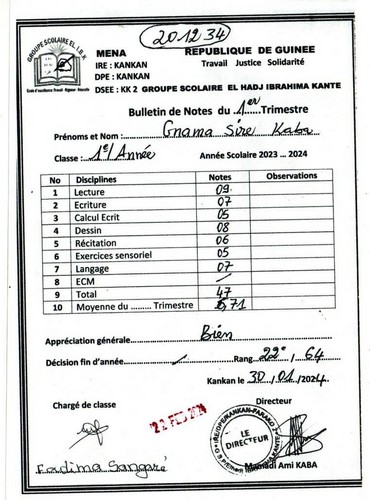 201234
GROUPE SCOLAIRE EL I.B.K
MENA
REPUBLIQUE DE GUINEE
IRE : KANKAN
Travail Justice Solidarité
DPE : KANKAN
DSEE : KK 2 GROUPE SCOLAIRE EL HADJ IBRAHIMA KANTE
Bulletin de Notes du 1er Trimestre
Prénoms et Nom : Gnama Sire Kaba
Classe : 1e Année Année Scolaire 2023 ... 2024
No Disciplines Notes Observations
1 Lecture 09
2 Ecriture 07
3 Calcul Ecrit 05
4 Dessin 08
5 Récitation 06
6 Exercices sensoriel 05
7 Langage 07
8 ECM /
9 Total 47
10 Moyenne du ......... Trimestre 6,71
Appréciation générale Bien
Décision fin d'année / Rang 22e / 64
Kankan le 30 / 01 /2024
Chargé de classe Directeur
22 FEB 2024
LE DIRECTEUR
Mamadi Ami KABA
Fadima Sangaré